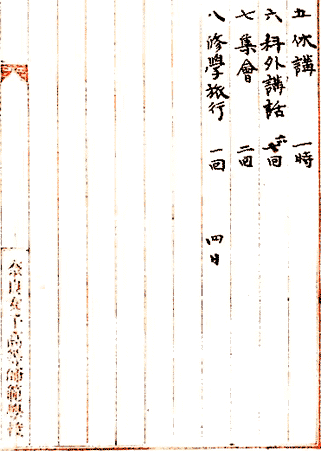 五 休講 一時
六 科外講話 六回
七 集會 二回
八 修學旅行 一回 四日
奈良女子高等師範學校